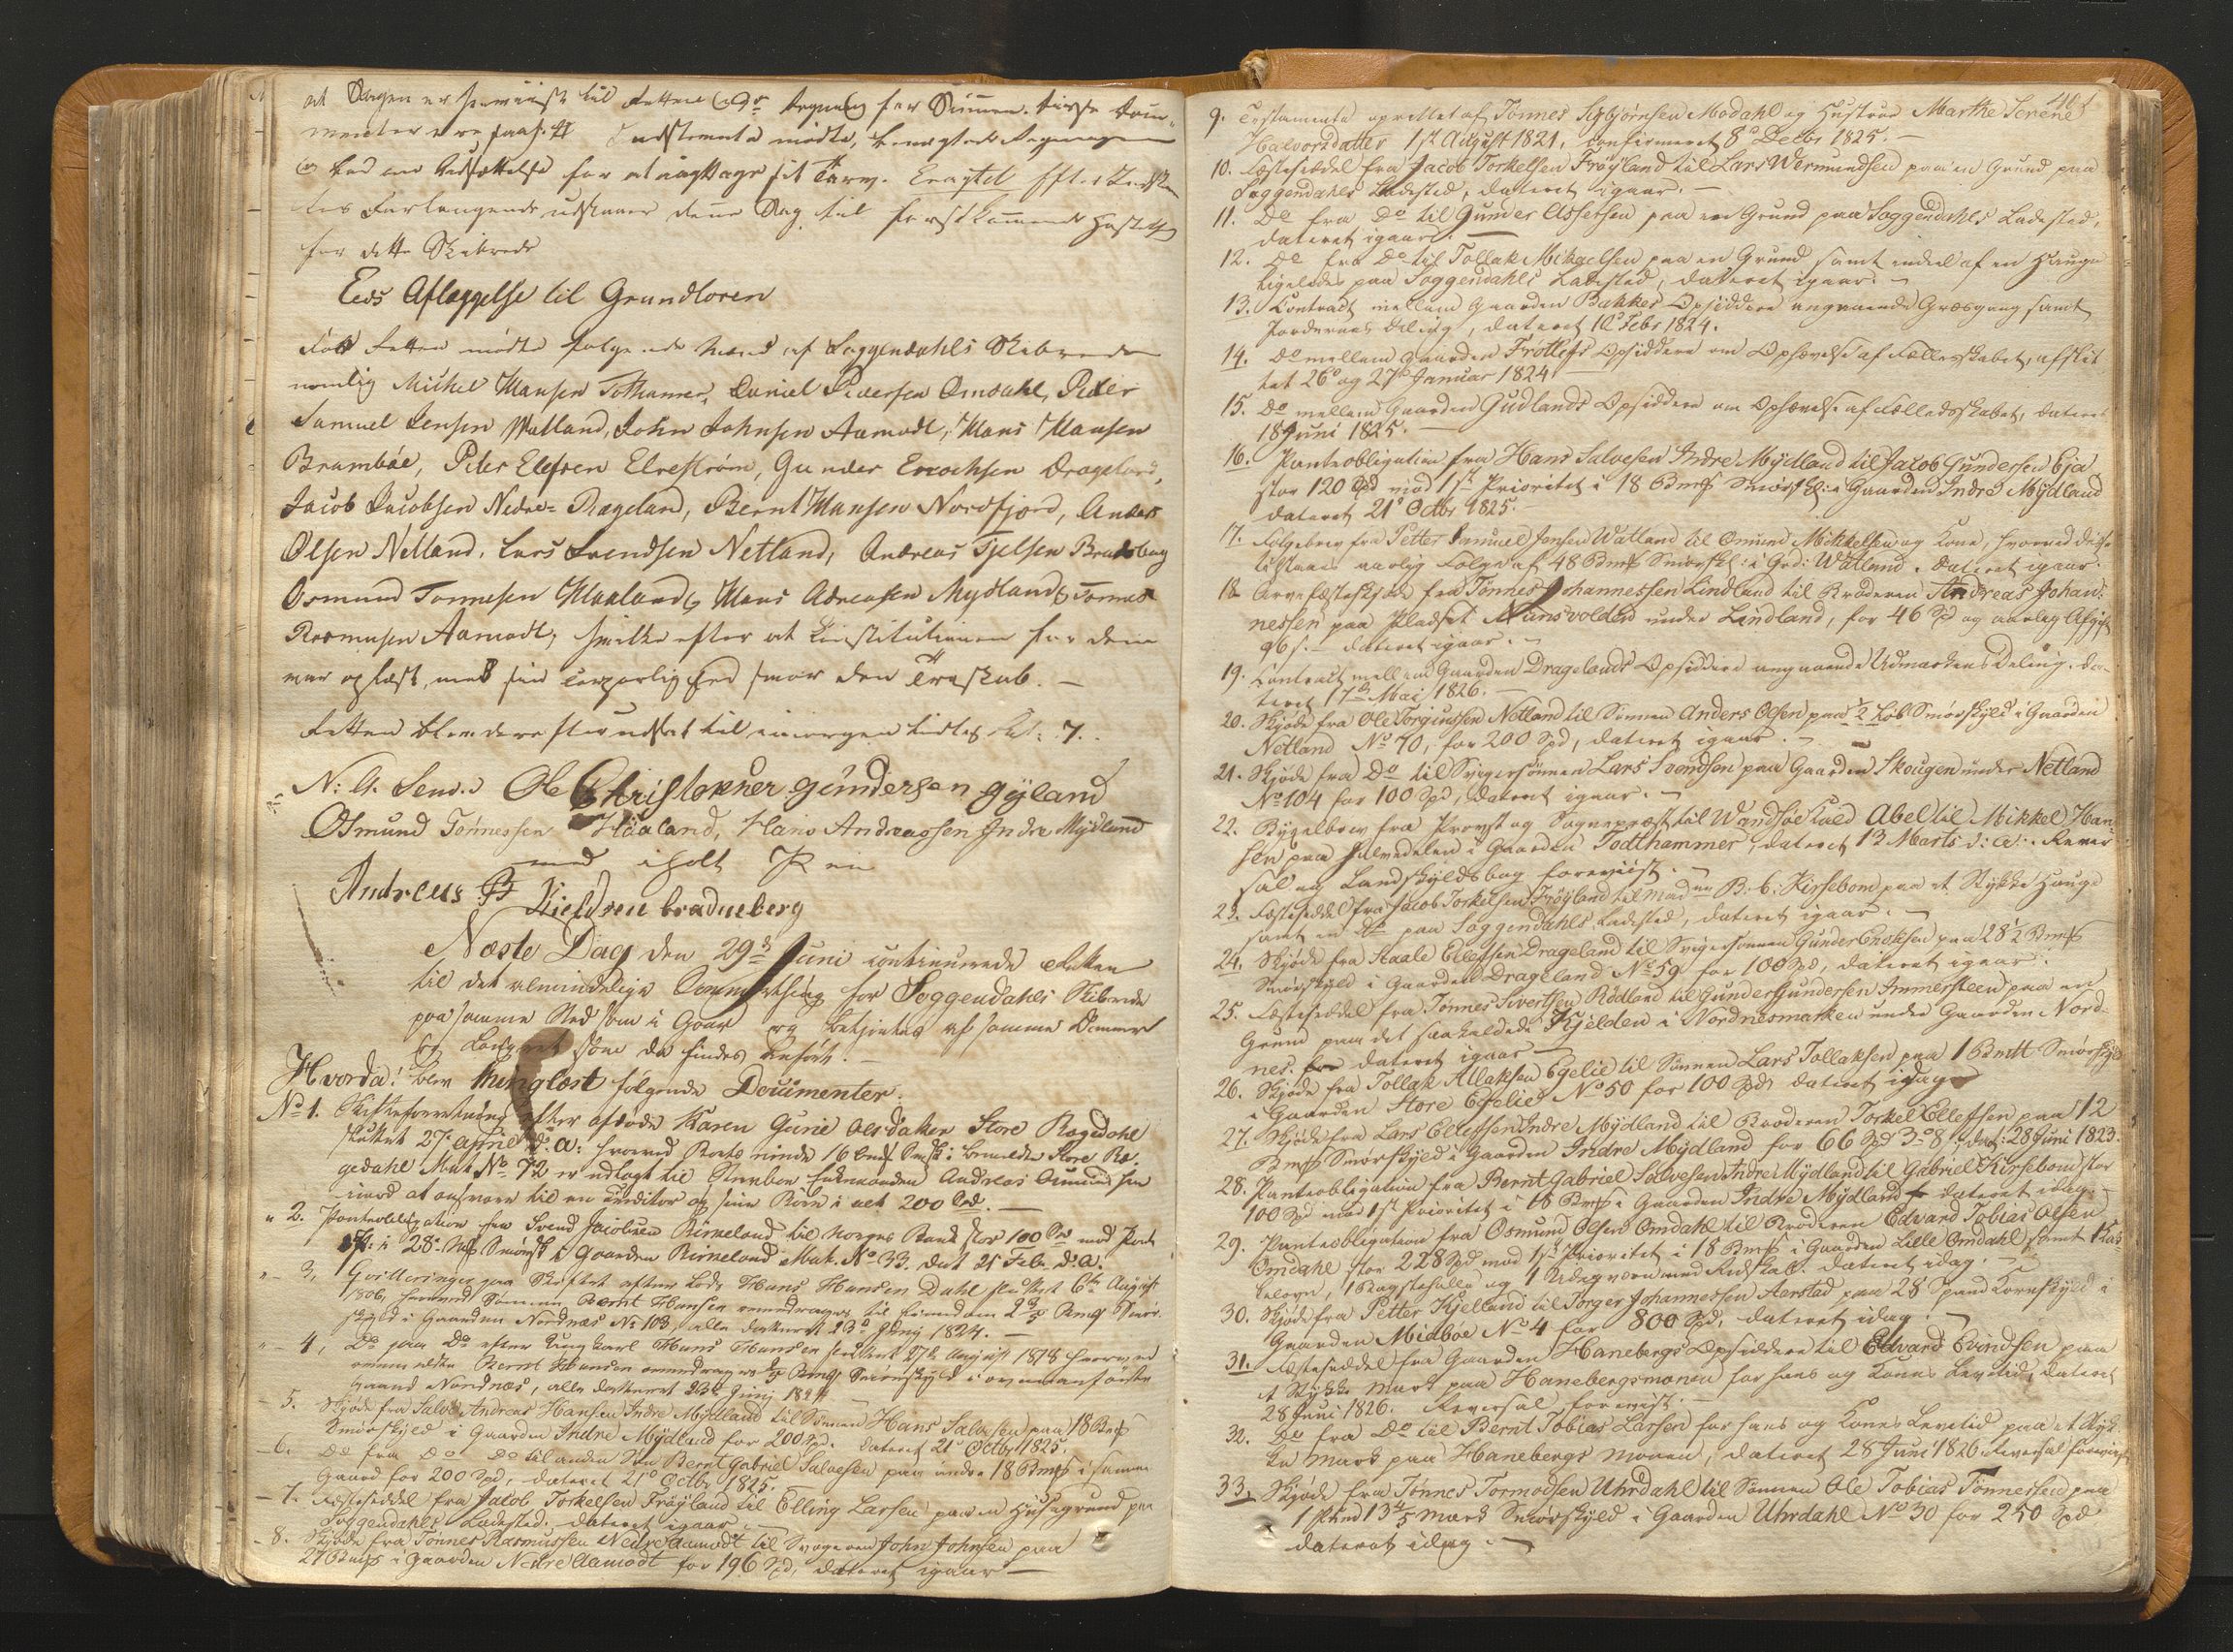 at Sagen er henviist til Retten
meenter ere saal. Indstevnte mødte, benegtede Regningen
bad om Udsættelse for at iagttage sit Tarv. Eragtet
tes Forlangende udstaaer denne Sag til førstkommende Høstething
for dette Skibrede
Eeds Aflæggelse til Grundloven
For Retten mødte følgende Mænd af Soggendahls Skibrede
nemlig Michel Hansen Tothammer, Daniel Pedersen Omdahl, Peder
Samuel Jensen Watland, John Johnsen Aamodt, Hans Hansen
Brambøe, Peder Elefsen Elvestrøm, Gunder Enochsen Drageland,
Jacob Jacobsen Nedre-Drageland, Bernt Hansen Nordfjord, Anders
Olsen Netland, Lars Svendsen Netland, Andreas Kjelsen Bradeberg
Osmund Tønnesen Haaland, Hans Adreasen Mydland, Tønnes
Rasmusen Aamodt, hvilke efter at Constitutionen for dem
var oplæst, med sin corporlig Eed svor den Troskab. —
Retten blev derefter udsat til imorgen tidlig Kl: 7.
N: A. Ole Christopher Gundersen Gyland
Osmund Tønnessen Haaland, Hans Andreassen Indre Mydland
med iholt Pen
Andreas Kieldsen bradneberg
Næste Dag den 29de Juni continuerede Retten
til det almindelige Sommerthing for Soggendahls Skibrede
paa samme Sted som i Gaar og betjentes af samme Dommer
og Laugret som da findes anført. —
Hvorda! blev thinglæst følgende Documenter:
No 1. Skifteforretning efter afdøde Karen Gurie Olesdatter Store Ragedahl
sluttet 27 April d. a: hvorved Boets eiende 16 Bmk Smsk: i bemeldte Store Ra-
gedahl Mat No 72 er udlagt til Sterbos Enkemanden Andreas Osmundsen
imod at ansvare til en Creditor og sine Børn i alt 200 Spd. —
" 2. Pantobligation fra Svend Jacobsen Birkeland til Norges Bank stor 100 Spd mod Pant
i 28 Mk Smørsk i Gaarden Birkeland Mat. No 33. dat 21 Feb. d. a.
" 3, Qvitteringer paa Skiftet efter Lods Hans Hansen Dahl sluttet 6te August
1806, hvorved Sønnen Bernt Hansen overdrages til Eiendom 2 3/5 Bmk Smør-
skyld i Gaarden Nordnæs No 103, alle dateret 23de Juny 1824. —
" 4, Do paa Do efter Ungkarl Hans Hansen sluttet 27d August 1818 hvorved
ommeldte Bernt Hansen overdrages Bmk Smørskyld i ovenanførte
Gaard Nordnæs, alle dateret 23de Juny 1824
5. Skjøde fra Salve Andreas Hansen Indre Mydland til Sønnen Hans Salvesen paa 18 Bmk
Smørskyld i Gaarden Indre Mydland for 200 Spd. dateret 21de Octbr 1825.
6. Do fra Do Do til anden Søn Bernt Gabriel Salvesen paa andre 18 Bmk i samme
Gaard for 200 Spd, dateret 21de Octbr 1825.
7. Fæsteseddel fra Jacob Torkelsen Frøyland til Elling Larsen paa en Husegrund paa
Soggendahls Ladested. dateret igaar. —
8. Skjøde fra Tønnes Rasmussen Nedre Aamodt til Svogeren John Johnsen paa
27 Bmk i Gaarden Nedre Aamodt for 196 Spd, dateret igaar —
9. Testamente oprettet af Tønnes Sigbjørnsen Modahl og Hustrue Marthe Serene
Halvorsdatter 1st August 1821, confirmeret 8de Decbr 1825. —
10. Fæsteseddel fra Jacob Torkelsen Frøyland til Lars Wermundsen paa en Grund paa
Soggendahls Ladested, dateret igaar. —
11. Do fra Do til Gunder Assersen paa en Grund paa Soggendahls Ladested,
dateret igaar. —
12. Do fra Do til Tollak Mikaelsen paa en Grund samt endeel af en Hauge
ligeledes paa Soggendahls Ladested, dateret igaar. —
13. Contract mellem Gaarden Bakkes Opsiddere angaaende Græsgang samt
Jordernes Deling, dateret 10de Febr 1824.
14. Do mellem Gaarden Frøtlefs Opsiddere om Ophævelse af Fællesskabet, afslut-
tet 26de og 27de Januar 1824
15. Do mellem Gaarden Gudlands Opsiddere om Ophævelse af Fælledsskabet, dateret
18 Juni 1825. —
16. Panteobligation fra Hans Salvesen Indre Mydland til Jacob Gundersen Eja
stor 120 Spd mod 1ste Prioritet i 18 Bmk Smørsk: i Gaarden Indre Mydland
dateret 21de Octbr 1825. —
17. Følgebrev fra Petter Samuel Jensen Watland til Omund Mikkelsen og Kone, hvorved disse
tilstaaes aarlig Følge af 48 Bmk Smørsk: i Grd: Watland. dateret igaar.
18. Arvefæsteskjøde fra Tønnes Johannessen Lindland til Broderen Andreas Johan-
nessen paa Pladset Munsvolden under Lindland, for 46 Spd og aarlig Afgift
96 s. — dateret igaar. —
19. Contract mellem Gaarden Dragelands Opsiddere angaaende Udmarkens Deling. da-
teret 17de Mai 1826. —
20. Skjøde fra Ole Torgiussen Netland til Sønnen Anders Olsen paa 1/2 Løb Smørskyld i Gaarden
Netland No 70, for 200 Spd, dateret igaar. —
21. Skjøde fra Do til Svigersønnen Lars Svendsen paa Gaarden Skougen under Netland
No 104 for 100 Spd, dateret igaar. —
22. Bygselbrev fra Provst og Sognepræst til Wandsøe Kald Abel til Mikkel Han-
sen paa Halvedelen i Gaarden Todthammer, dateret 13 Marts d: A: Rever-
sal og Landskyldsbog foreviist. —
23. Fæsteseddel fra Jacob Torkelsen Frøyland til Madme B: C: Kirsebom paa et Stykke Hauge
samt en paa Soggendahls Ladested, dateret igaar. —
24. Skjøde fra Staale Ellefsen Drageland til Svigersønnen Gunder Enoksen paa 28 1/2 Bmk
Smørskyld i Gaarden Drageland No 59 for 100 Spd, dateret igaar.
25. Fæsteseddel fra Tønnes Sivertsen Rødland til Gunder Gundersen Ammersteen paa en
Grund paa det saakaldede Kjelden i Nordnesmarken under Gaarden Nord-
nes. dateret igaar —
26. Skjøde fra Tollak Allaksen Egelie til Sønnen Lars Tollaksen paa 1 Bmtt Smørskyld
i Gaarden Store Egelie No 50 for 100 Spd, dateret idag
27. Skjøde fra Lars Ellefsen Indre Mydland til Broderen Torkel Ellefsen paa 12
Bmk Smørskyld i Gaarden Indre Mydland for 66 Spd 3 8, dat: 28 Juni 1823.
28. Panteobligation fra Bernt Gabriel Salvesen Indre Mydland til Gabriel Kirsebom stor
100 Spd mod 1ste Prioritet i 18 Bmk i Gaarden Indre Mydland dateret idag. —
29. Panteobligation fra Osmund Olsen Omdahl til Broderen Edvard Tobias Olsen
Omdahl stor 228 Spd mod 1ste Prioritet i 18 Bmk i Gaarden Lille Omdahl samt 1 Kak-
kelovn, 1 og 1 med Redskab. dateret idag. —
30. Skjøde fra Petter Kjelland til Torger Johannessen Aarstad paa 28 Spand Kornskyld i
Gaarden Midbøe No 4 for 800 Spd, dateret idag. —
31. Fæsteseddel fra Gaarden Hanebergs Opsiddere til Edvard Evindsen paa
et Stykke Mark paa Hanebergsmonen for hans og Kones Levetid, dateret
28 Juni 1826. Reversal foreviist. —
32. Do fra Do til Bernt Tobias Larsen for hans og Kones Levetid paa et Styk-
ke Mark paa Hanebergs Monen, dateret 28 Juni 1826 Reversal foreviist
33. Skjøde fra Tønnes Tormodsen Uhrdahl til Sønnen Ole Tobias Tønnessen paa
1 Pund 13 4/5 Mark Smørskyld i Gaarden Uhrdahl No 30 for 250 Spd
dateret idag. —